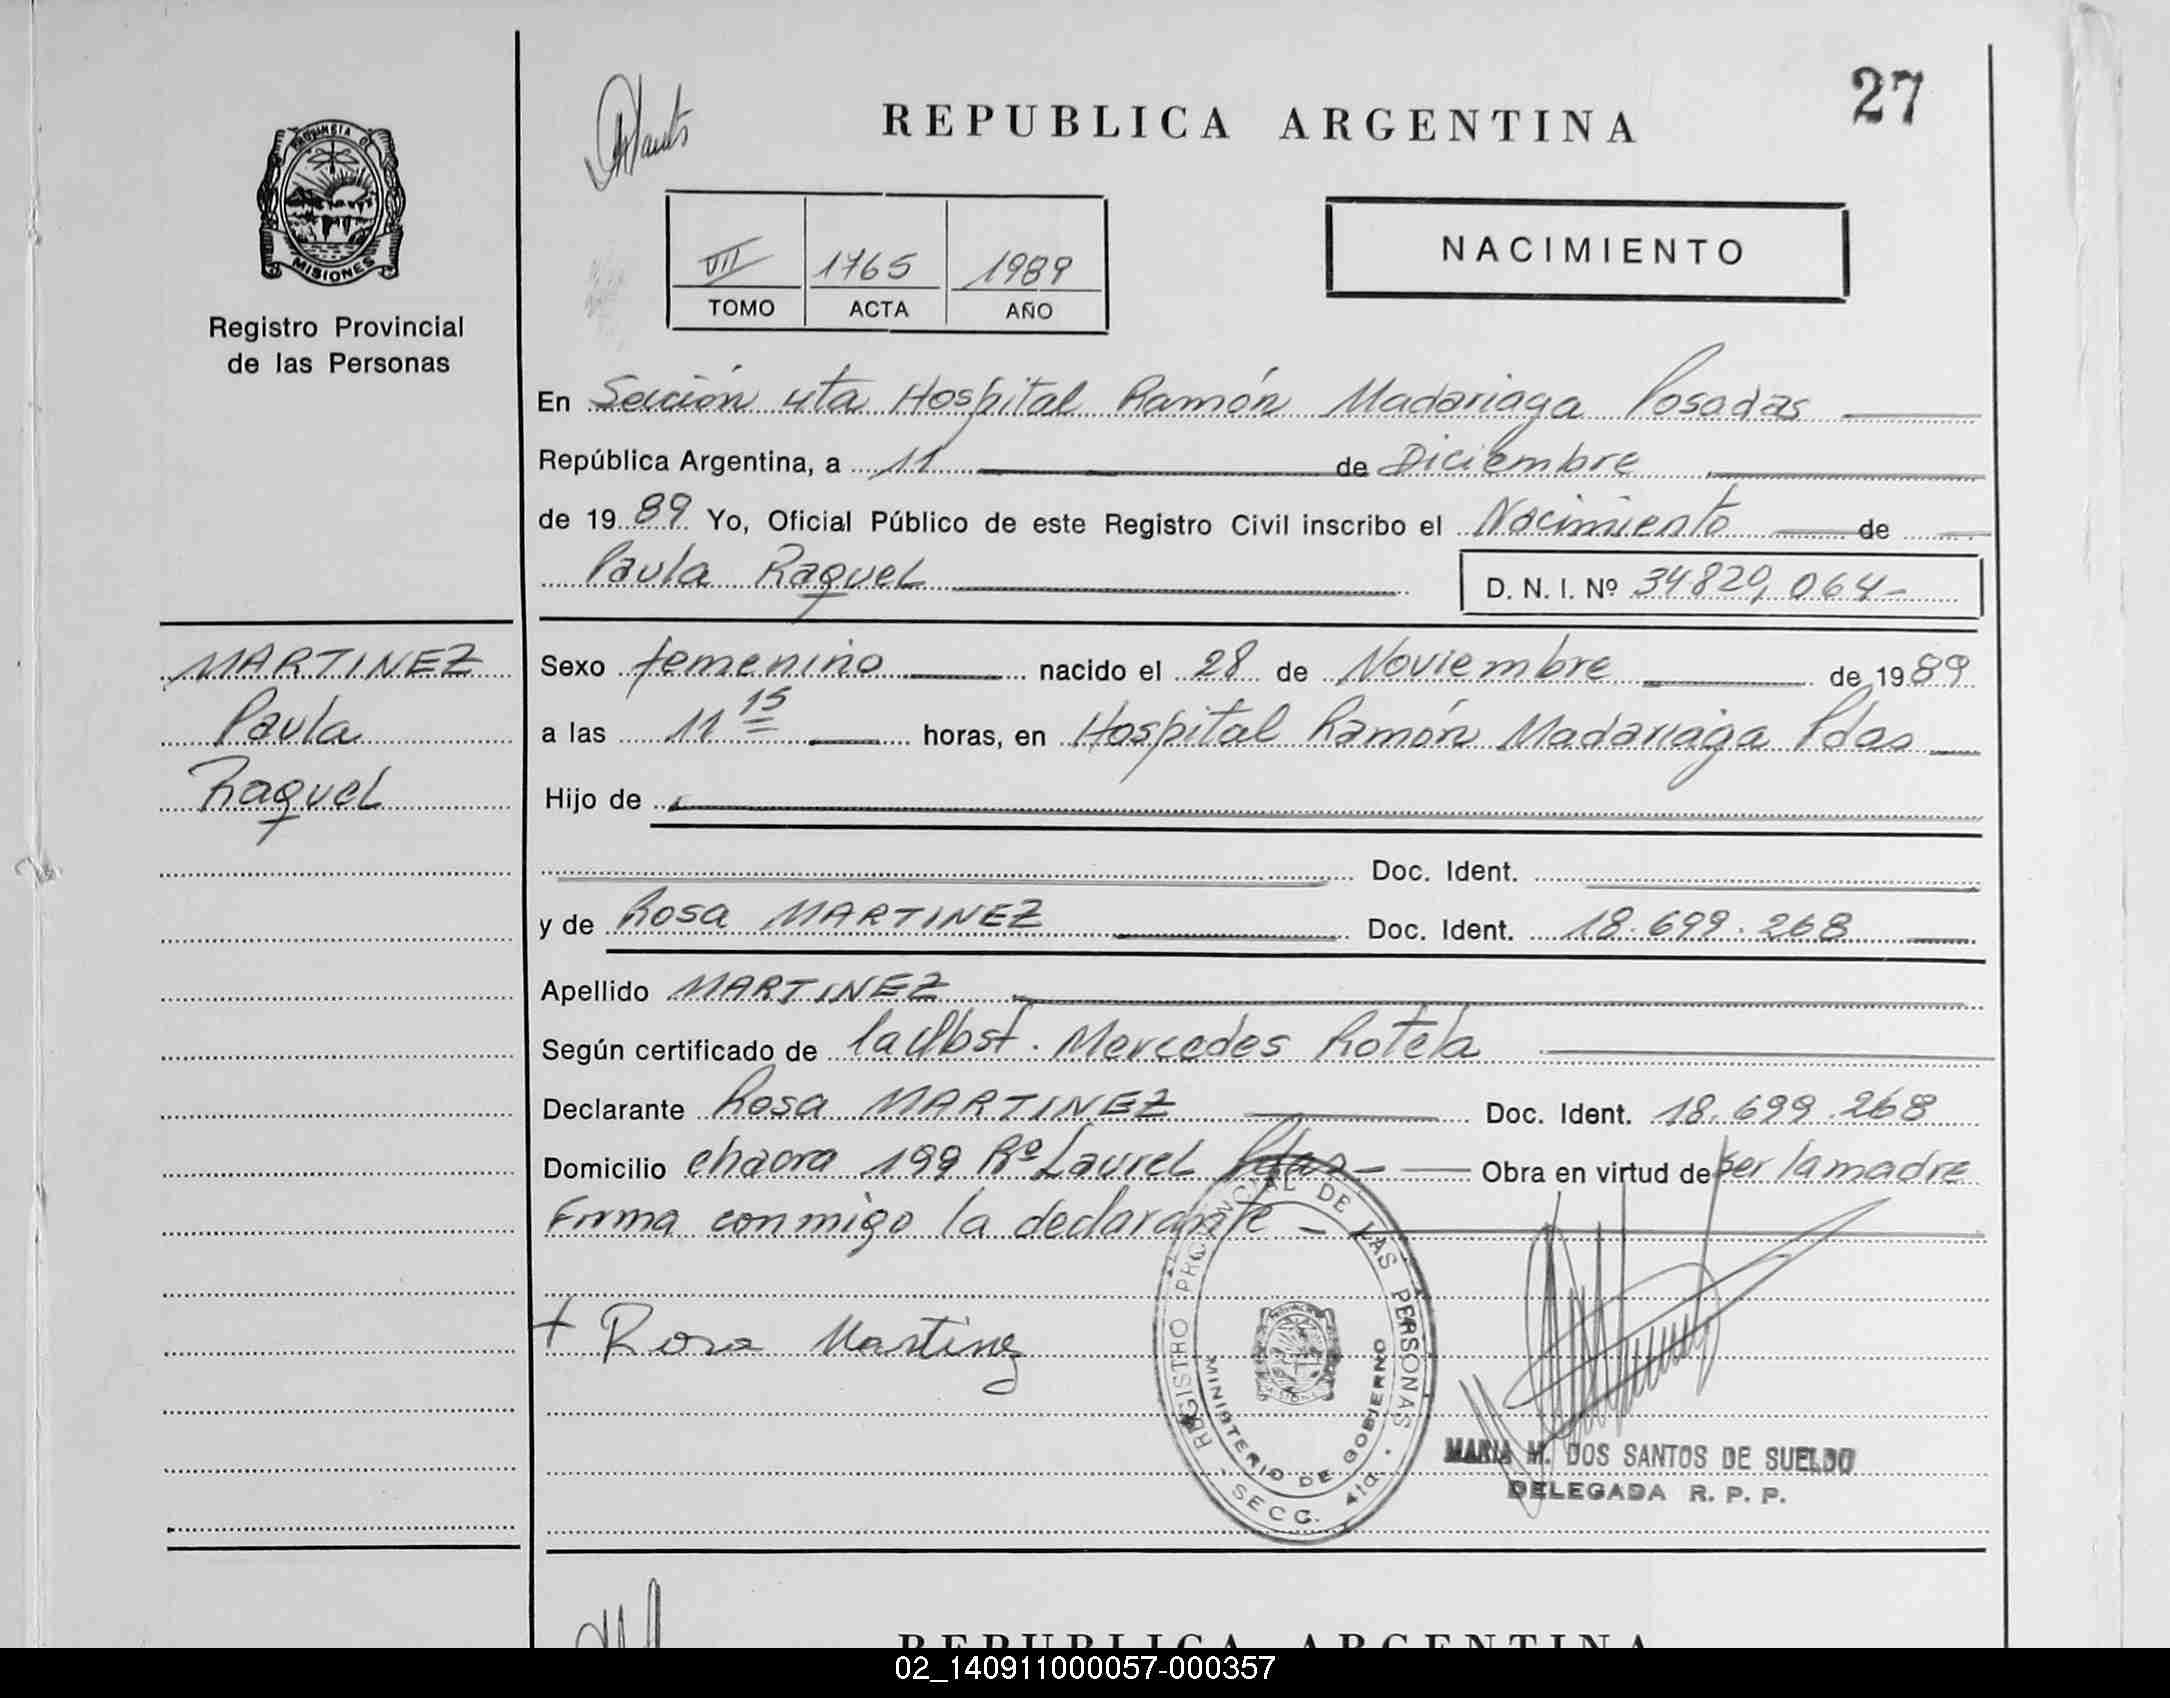 27
REPUBLICA ARGENTINA
PROVINCIA DE
MISIONES
Registro Provincial
de las Personas
VII 1765 1989
TOMO ACTA AÑO
NACIMIENTO
En Sección 4ta Hospital Ramón Madariaga Posadas
República Argentina, a 11 de Diciembre
de 1989 Yo, Oficial Público de este Registro Civil inscribo el Nacimiento de
Paula Raquel
D. N. I. Nº 34829,064-
MARTINEZ
Paula
Raquel
Sexo femenino nacido el 28 de Noviembre de 1989
a las 11 15 horas, en Hospital Ramón Madariaga Pdas
Hijo de
Doc. Ident.
y de Rosa MARTINEZ Doc. Ident. 18.699.268
Apellido MARTINEZ
Según certificado de la Obst. Mercedes Rotela
Declarante Rosa MARTINEZ Doc. Ident. 18.699.268
Domicilio chacra 199 Bº Laurel Pdas- Obra en virtud de ser la madre
Firma conmigo la declarante -
+ Rosa Martinez
REGISTRO PROVINCIAL DE LAS PERSONAS
MINISTERIO DE GOBIERNO
SECC. 4ta.
MARIA M. DOS SANTOS DE SUELDO
DELEGADA R. P. P.
REPUBLICA ARGENTINA
02_140911000057-000357